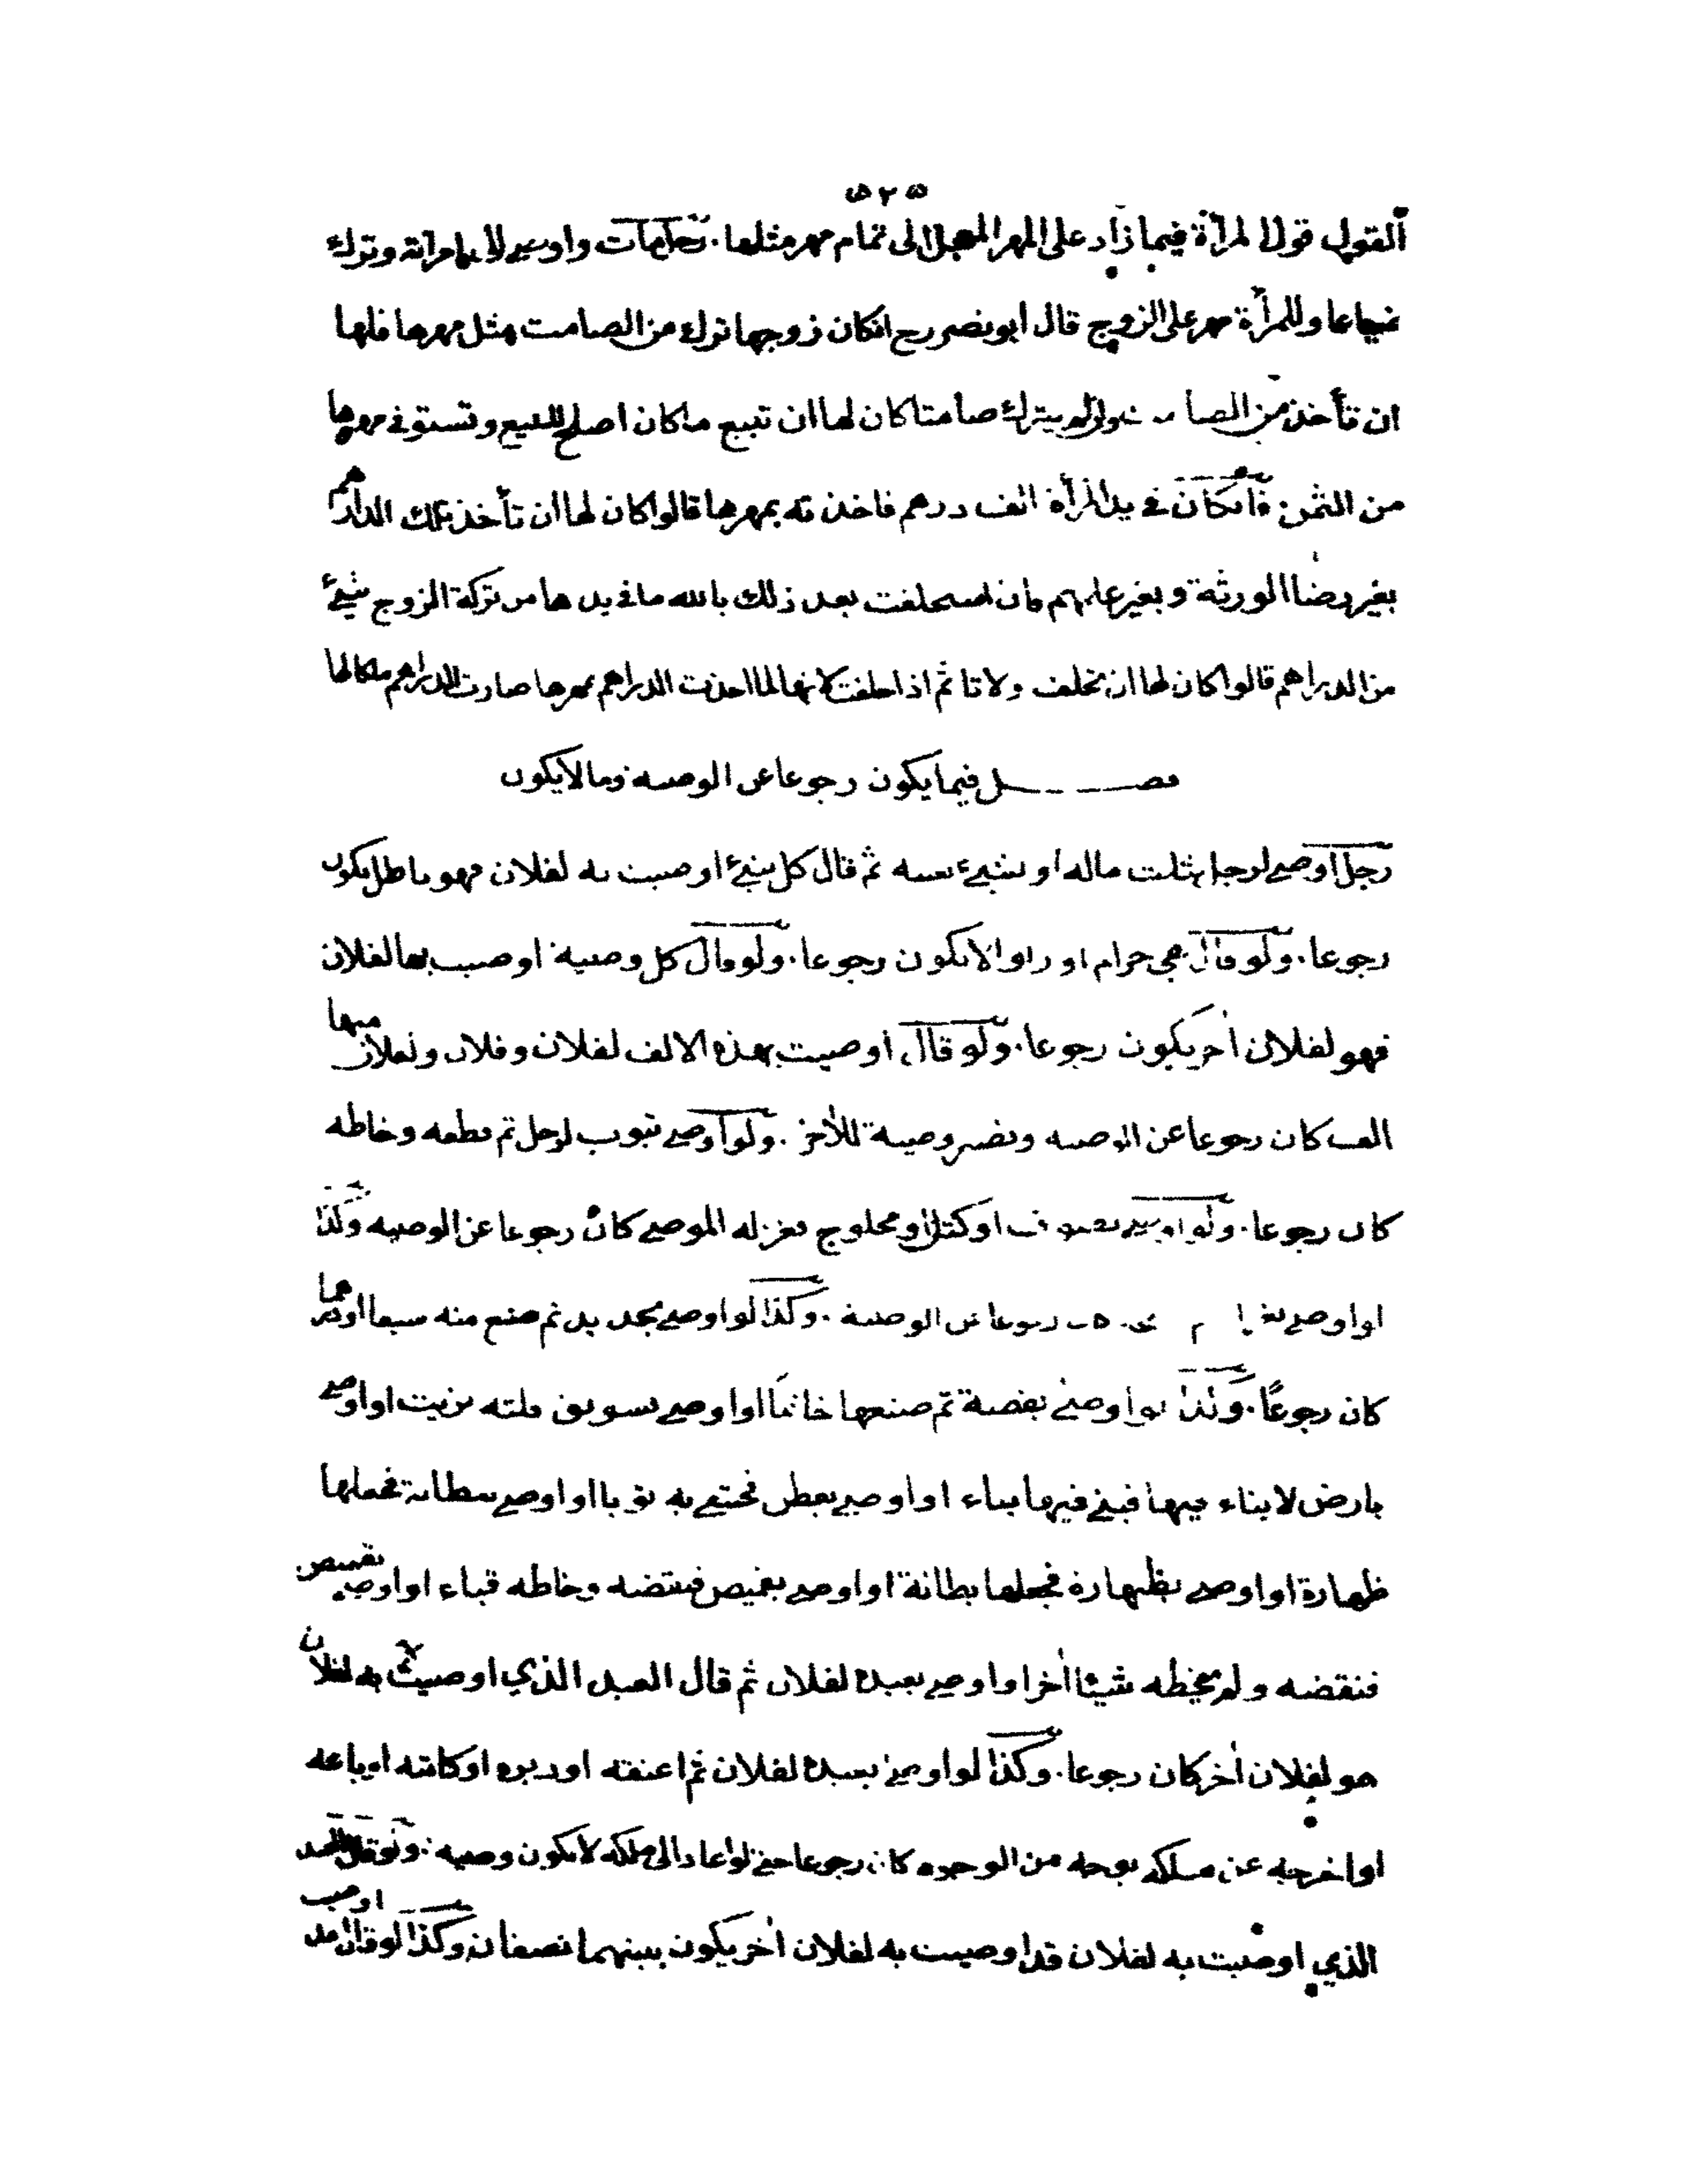 ٥٢٥
القول قول المرأة فيما زاد على المهر المعجل الى تمام مهر مثلها. رجل مات واوصى الى امرأته وترك
ضياعا وللمرأة مهر على الزوج قال ابو نصر رح انكان زوجها ترك من الصامت مثل مهرها فلها
ان تأخذ من الصامت وان لم يترك صامتا كان لها ان تبيع ماكان اصلح للبيع وتستوفي مهرها
من الثمن فانكان في يد المرأة الف درهم فاخذته بمهرها قالوا كان لها ان تأخذ تلك الدراهم
بغير رضا الورثة وبغير علمهم فان استحلفت بعد ذلك بالله ما في يدها من تركة الزوج شيئ
من الدراهم قالوا كان لها ان تحلف ولا تاثم اذا حلفت لانها لما اخذت الدراهم بمهرها صارت الدراهم ملكا لها
فصل فيما يكون رجوعا عن الوصية وما لا يكون
رجل اوصى لرجل بثلث ماله او بشيء بعينه ثم قال كل شيئ اوصيت به لفلان فهو باطل يكون
رجوعا. ولو قال هي حرام او ربوا لا يكون رجوعا. ولو قال كل وصية اوصيت بها لفلان
فهو لفلان اخر يكون رجوعا. ولو قال اوصيت بهذه الالف لفلان وفلان ولفلان منها
الف كان رجوعا عن الوصية ويصير وصية للاخر. ولو اوصى بثوب لرجل ثم قطعه وخاطه
كان رجوعا. ولو اوصى بصوف او كتان او محلوج فغزله الموصي كان رجوعا عن الوصيه وكذا
او اوصى رجوعا عن الوصية. وكذا لو اوصى بحديد ثم صنع منه سيفا او درعا
كان رجوعا. وكذا لو اوصى بفضة ثم صنعها خاتما او اوصى بسويق فلته بزيت او اوصى
بارض لا بناء فيها فبنى فيها بناء او اوصى بقطن فحشي به ثوبا او اوصى ببطانة فجعلها
ظهارة او اوصى بظهارة فجعلها بطانة او اوصى بقميص فنقضه وخاطه قباء او اوصى بقميص
فنقضه ولم يخطه شيئا اخر او اوصى بعبده لفلان ثم قال العبد الذي اوصيت به لفلان
هو لفلان اخر كان رجوعا. وكذا لو اوصى بعبده لفلان ثم اعتقه او دبره او كاتبه او باعه
او اخرجه عن ملكه بوجه من الوجوه كان رجوعا حتى لو عاد الى ملكه لا يكون وصيه. ولو قال العبد
الذي اوصيت به لفلان قد اوصيت به لفلان اخر يكون بينهما نصفان وكذا لو قال قد اوصيت